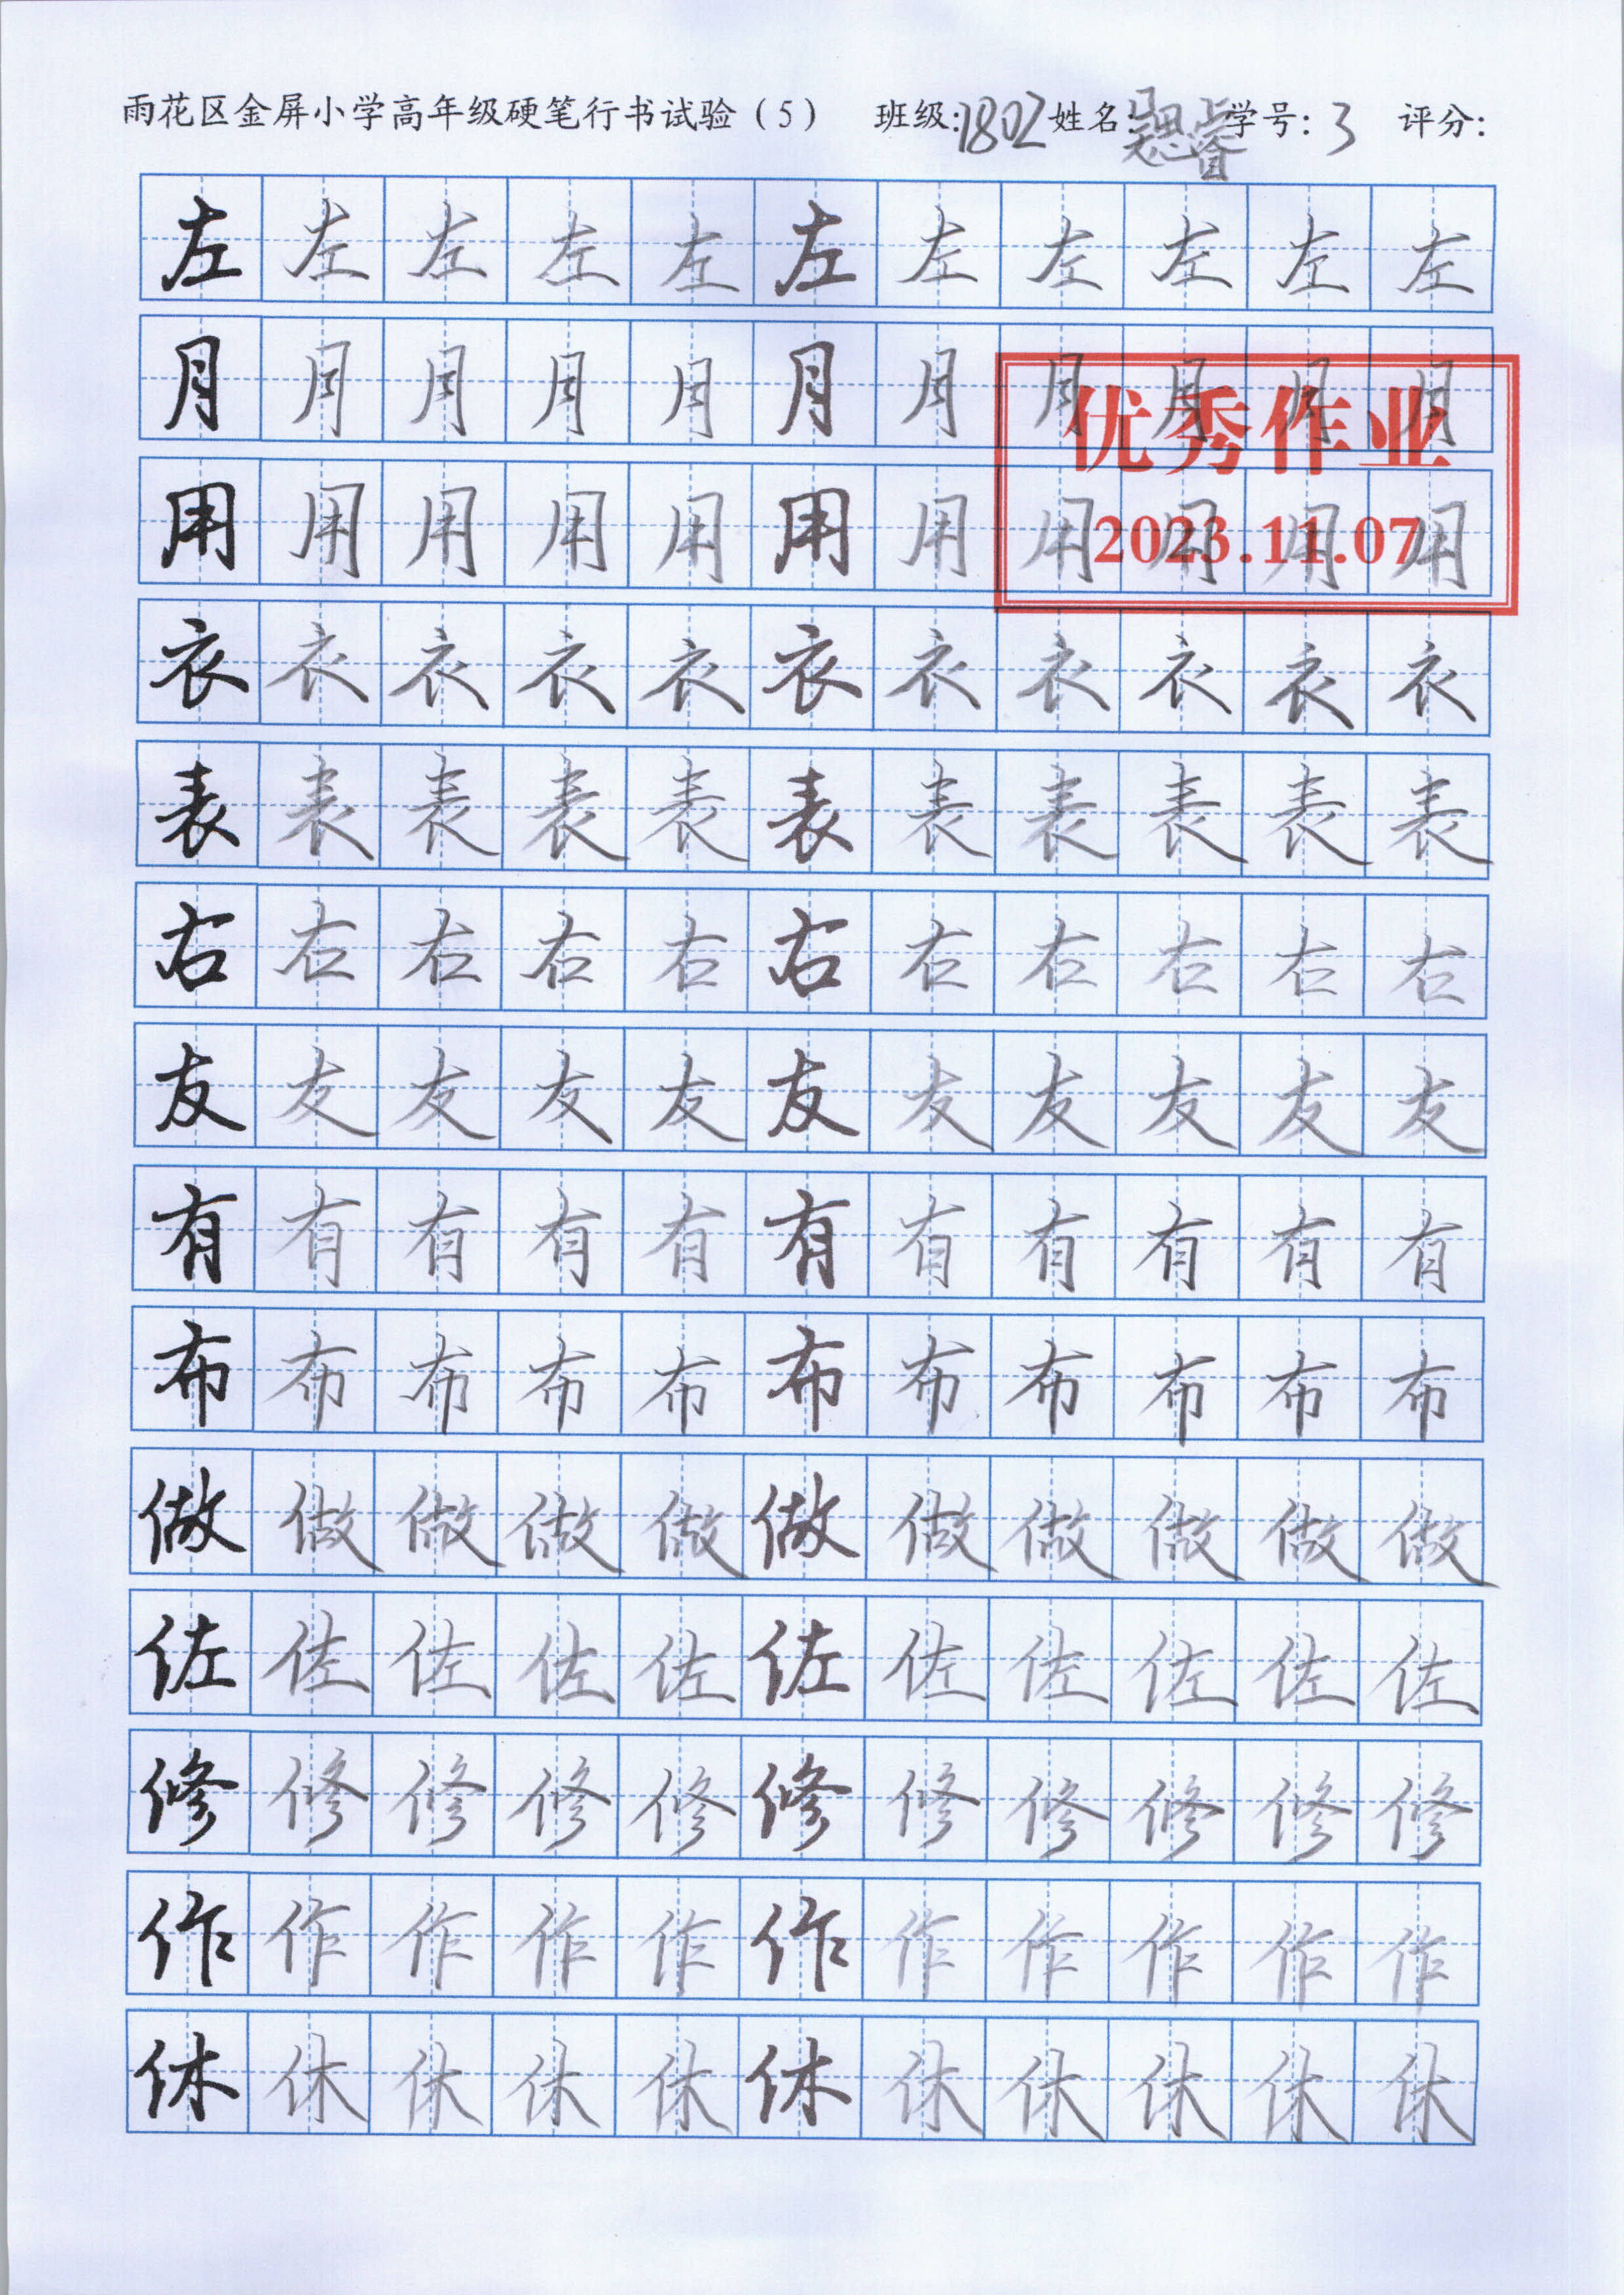 雨花区金屏小学高年级硬笔行书试验（5） 班级:1802 姓名:吴思睿 学号: 3 评分:
左左左左左左左左左左左
月月月月月月月月月月月
优秀作业
用用用用用用用用用用用
2023.11.07
衣衣衣衣衣衣衣衣衣衣衣
表表表表表表表表表表表
右右右右右右右右右右右
友友友友友友友友友友友
有有有有有有有有有有有
布布布布布布布布布布布
做做做做做做做做做做做
佐佐佐佐佐佐佐佐佐佐佐
修修修修修修修修修修修
作作作作作作作作作作作
休休休休休休休休休休休